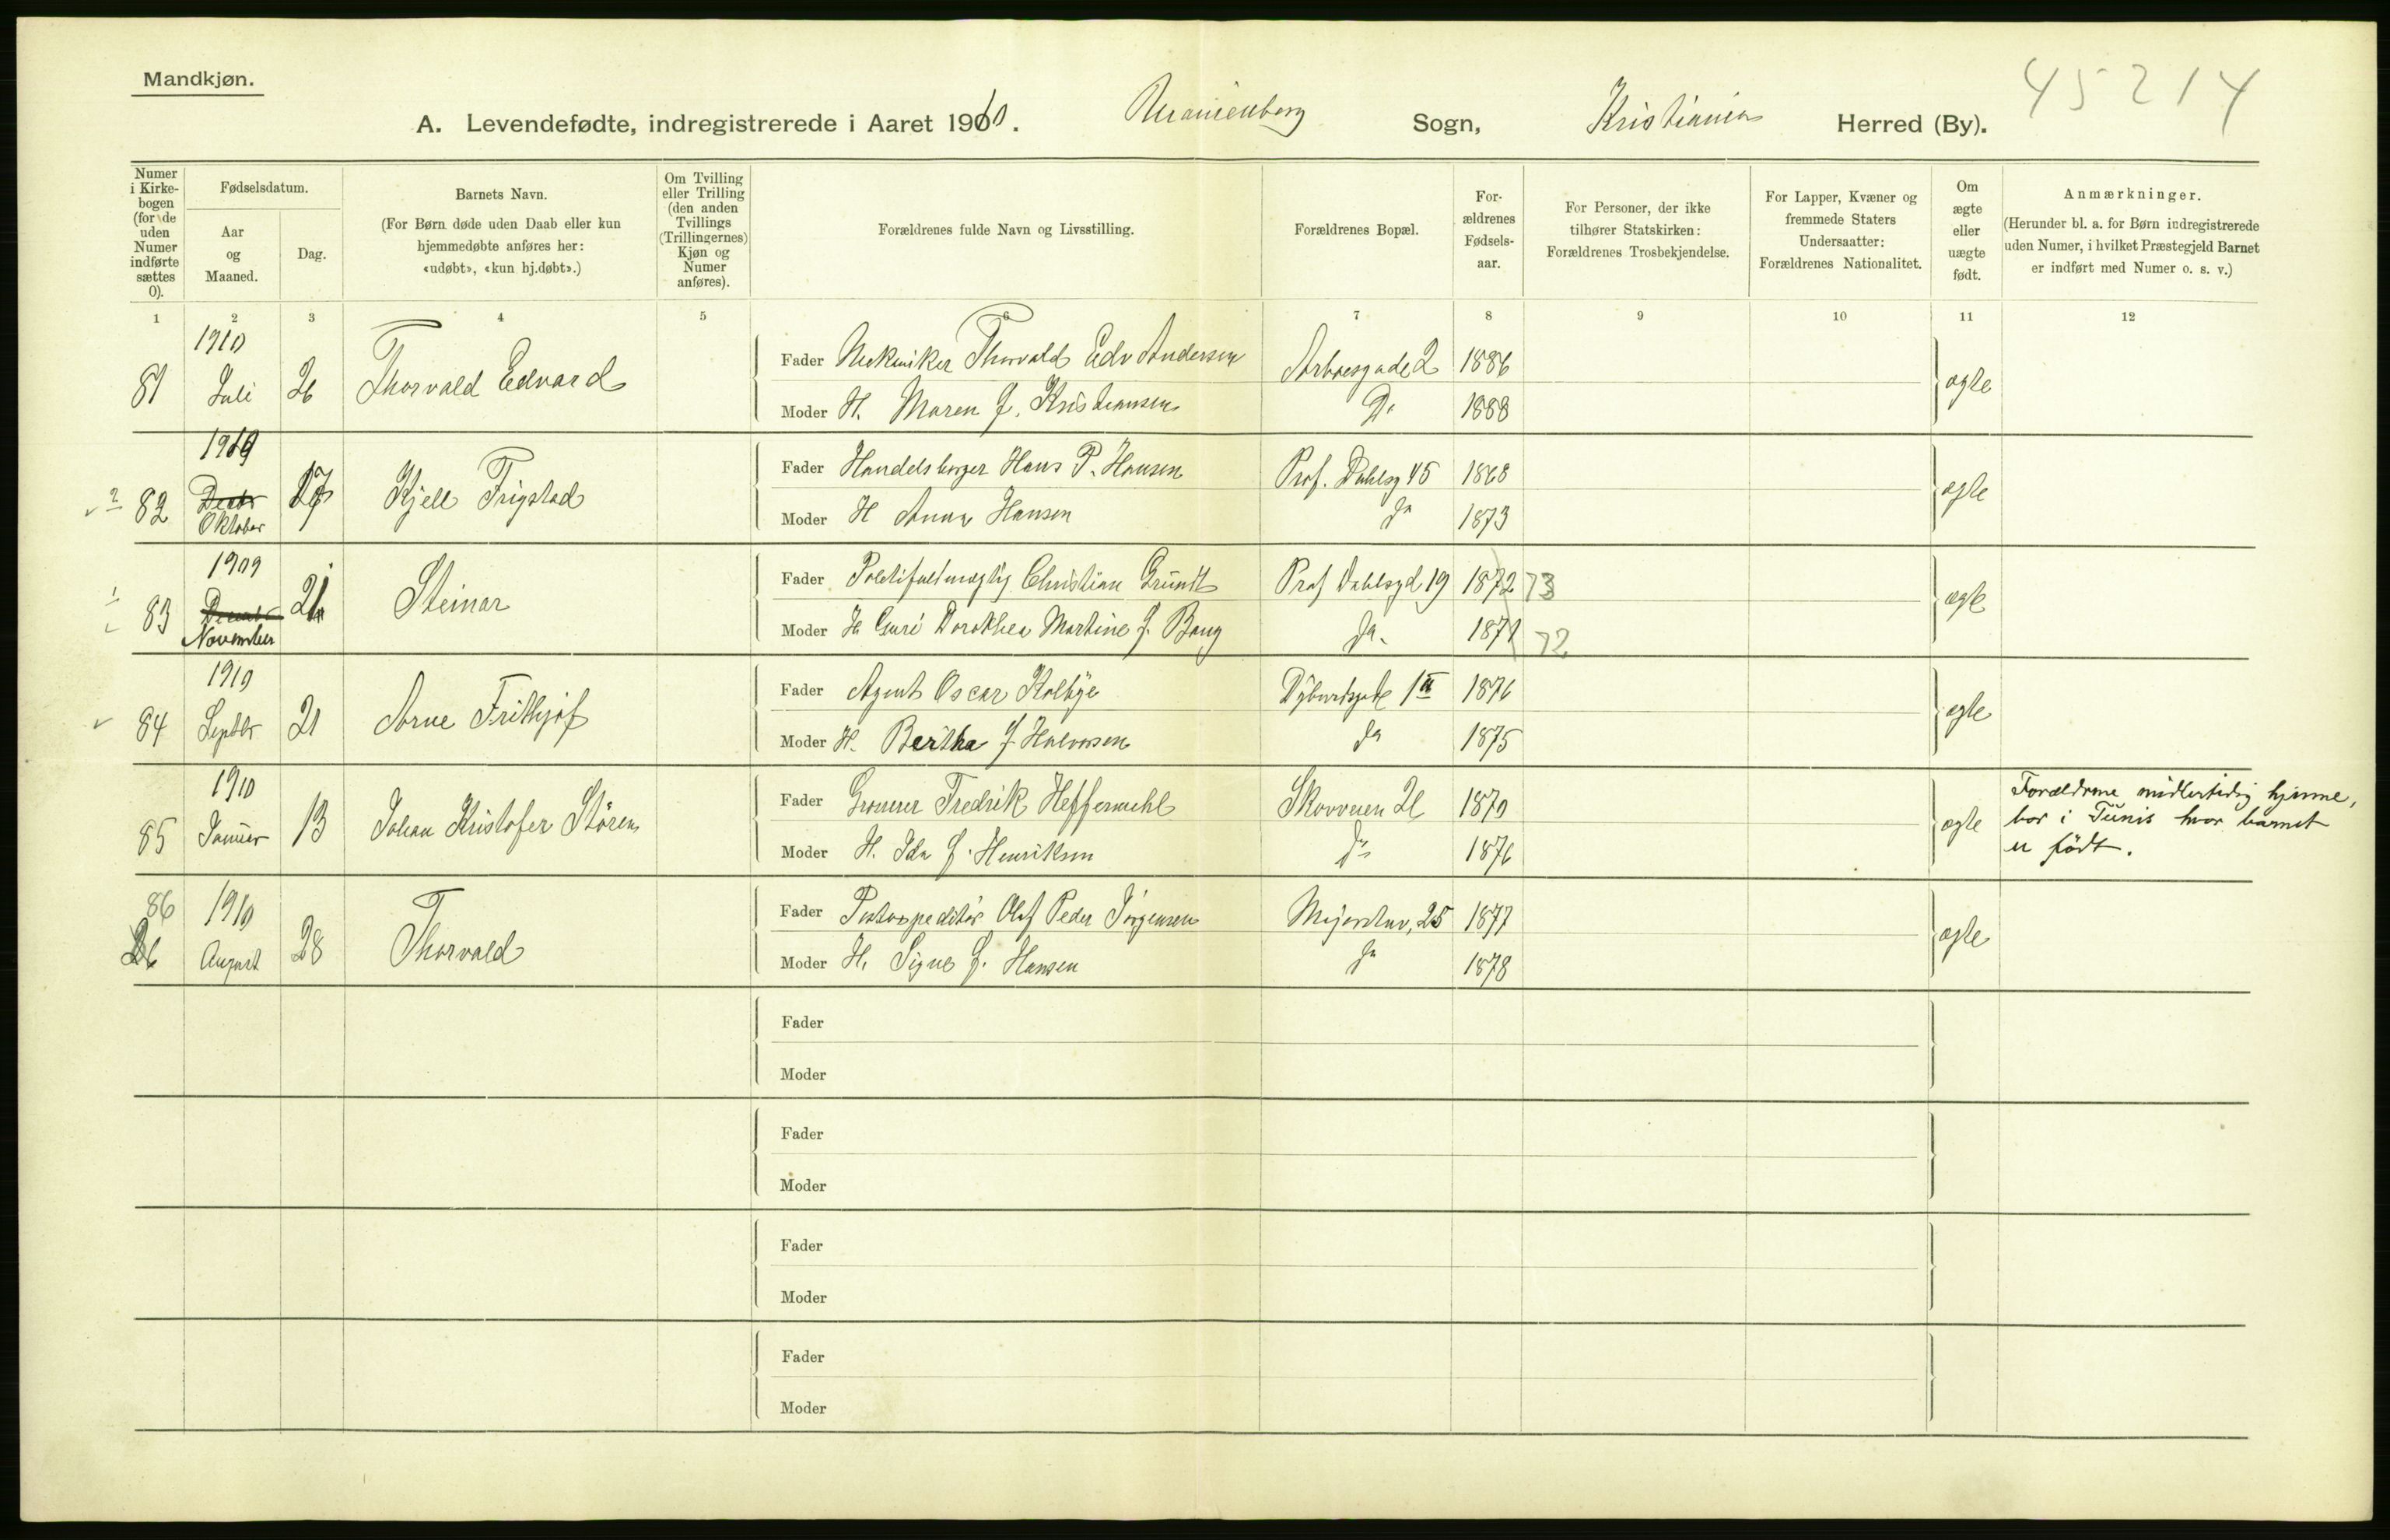 Mandkjøn.
45214
A. Levendefødte, indregistrerede i Aaret 1910. Uranienborg Sogn, Kristiania Herred (By).
Numer i Kirkebogen (for de uden Numer indførte sættes 0).
Fødselsdatum.
Aar og Maaned.
Dag.
Barnets Navn.
(For Børn døde uden Daab eller kun hjemmedøbte anføres her: «udøbt», «kun hj.døbt».)
Om Tvilling eller Trilling (den anden Tvillings (Trillingernes) Kjøn og Numer anføres).
Forældrenes fulde Navn og Livsstilling.
Forældrenes Bopæl.
For-ældrenes Fødsels-aar.
For Personer, der ikke tilhører Statskirken: Forældrenes Trosbekjendelse.
For Lapper, Kvæner og fremmede Staters Undersaatter: Forældrenes Nationalitet.
Om ægte eller uægte født.
Anmærkninger.
(Herunder bl. a. for Børn indregistrerede uden Numer, i hvilket Præstegjeld Barnet er indført med Numer o. s. v.)
1 2 3 4 5 6 7 8 9 10 11 12
81 1910 Juli 26 Thorvald Edvard Fader Mekaniker Thorvald Edv Andersen 1886 ægte
Moder H. Maren f. Kristiansen Do 1888
82 Oktober 17 Kjell Frigstad Fader Handelsborger Hans P. Hansen Prof. Dahlsg 45 1868 ægte
Moder H Anna Hansen Do 1873
83 1909 November 21 Steinar Fader Politifuldmægtig Christian Grundt Prof Dahlsgd 19 1872 73 ægte
Moder H Guri Dorothea Martine f. Bang Do. 1871 72
84 1910 Septbr 21 Arne Frithjof Fader Agent Oscar Kolbye 1876 ægte
Moder H. Bertha f Halvorsen Do 1875
85 1910 Januar 13 Johan Kristofer Støren Fader Fredrik Heffermehl Skovveien 1870 ægte Forældrene midlertidig hjemme,
bor i Tunis hvor barnet
er født.
Moder H. Ida f. Henriksen Do 1876
86 1910 August 28 Thorvald Fader Postexpeditør Olaf Peder Jørgensen 25 1877 ægte
Moder H. Signe f. Hansen Do 1878
Fader
Moder
Fader
Moder
Fader
Moder
Fader
Moder